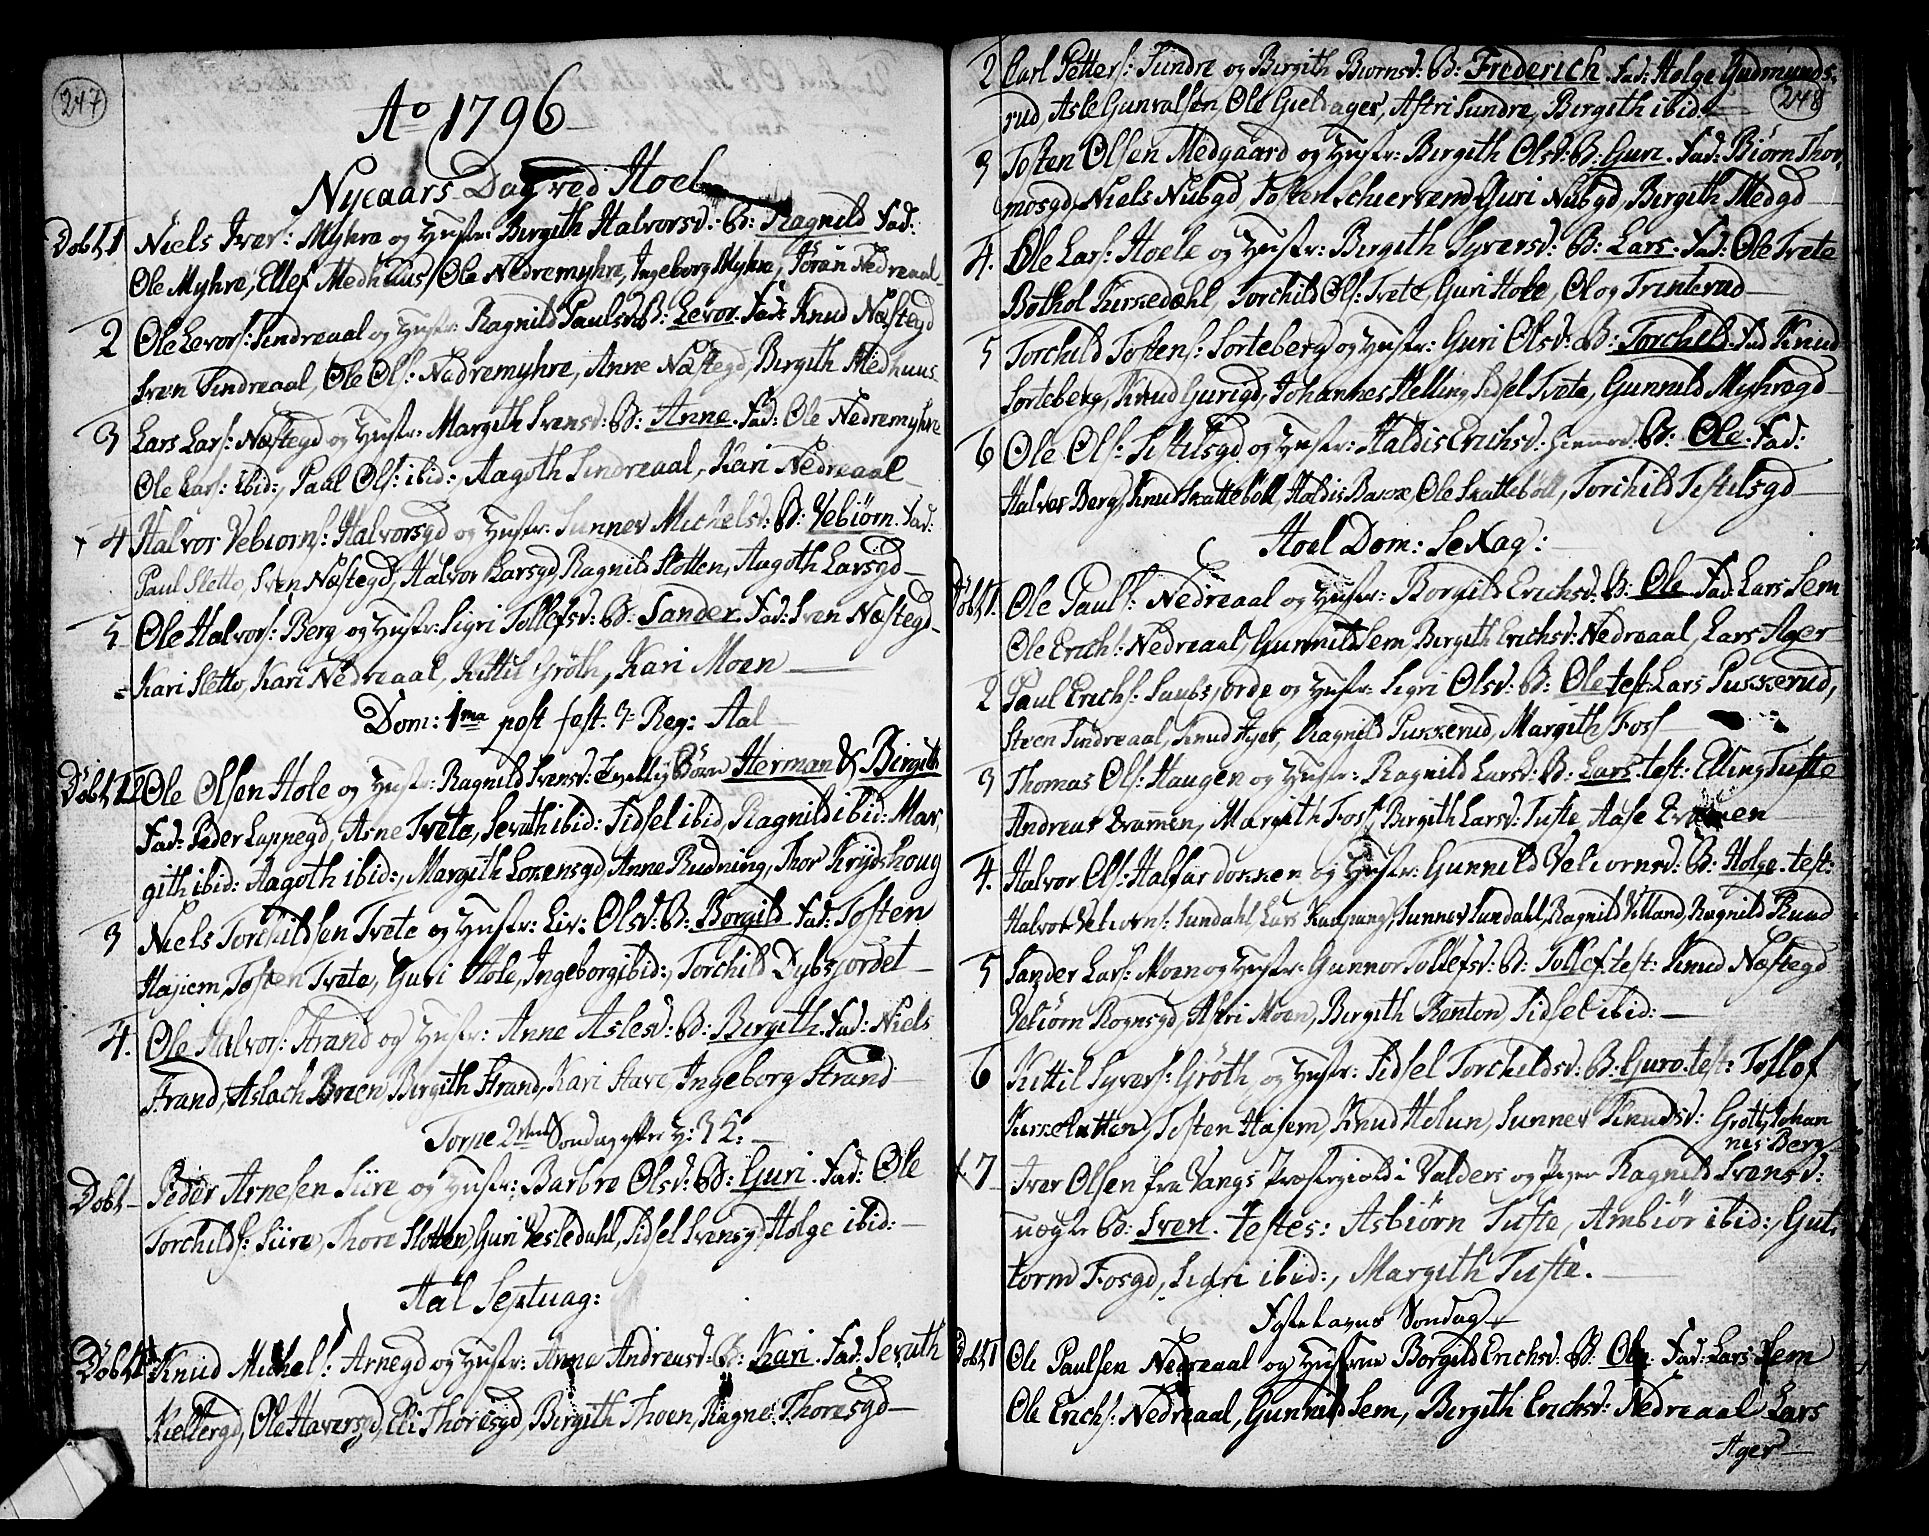 247
Ao 1796
Nyeaars Dag ved Hoel
Døbt 1 Niels Iver: Myhre og Hustr: Birgith Halvorsd: B: Ragnild Fad:
Ole Myhre, Ellef Medhuus, Ole Nedremyhre, Ingeborg Myhre, Jøran Nedreaal
2 Ole Levors: Sindreaal og Hustr: Ragnild Paulsd: B: Levor. Fad: Knud Næstegd
Sven Sindreaal, Ole Ols: Nedremyhre, Anne Næstegd, Birgith Medhuus
3 Lars Lars: Næstegd og Hustr: Margith Svensd: B: Anne. Fad: Ole Nedremyhre
Ole Lars: ibid:, Paul Ols: ibid:, Aagoth Sindreaal, Kari Nedreaal
4 Halvor Vebiorns: Halvorsgd og Hustr: Sunnev Michelsd: B: Vebiørn. Fad:
Paul Sletto, Sven Næstegd, Halvor Larsgd, Ragnild Slotten, Aagoth Larsgd
5 Ole Halvors: Berg og Hustr: Sigri Tollefsd: B: Sander. Fad: Sven Næstegd
Kari Sletto, Kari Nedreaal, Kittil Grøth, Kari Moen
Dom: 1ma post fest. 3. Reg: Aal
Døbt 1 2 Ole Olsen Hole og Hustr: Ragnild Svensd: Tvelling Børn Herman & Birgith
Fad: Peder Lappegd, Arne Tvete, Sevath ibid: Sidsel ibid, Ragnild ibid: Mar,
gith ibid: Aagoth ibid:, Margith Lorensgd, Anne Rudning, Thor Krydshoug
3 Niels Torchildsen Tvete og Hustr: Liv: Olsd: B: Borgild Fad: Tosten
Hajiem, Tosten Tvete, Guri Hole, Ingeborg ibid:, Torchild Dybsjordet
4. Ole Halvors: Strand og Hustr: Anne Aslesd: B: Birgith. Fad: Niels
Strand, Aslach Breen, Birgith Strand, Kari Stave Ingeborg Strand
Torpe 2den Søndag efter H: 3 K:
Døbt Peder Arnesen Siire og Hustr: Barbro Olsd: B: Guri. Fad: Ole
Torchilds: Siire, Thore Slotten, Guri Vesledahl, Sidsel Svensgd, Holge ibid:
Aal Septuag:
Døbt 1 Knud Michels: Arnegd og Hustr: Anne Andreasd: B: Kari. Fad: Sevath
Kieltergd, Ole Haversgd, Eli Thoresgd, Birgith Thoen, Ragne Thoresgd
248
2 Carl Petters: Sundre og Birgith Biornsd: B: Frederich. Fad: Holge Gudmunds,
rud, Asle Gunvalsen, Ole Gieldager, Astri Sundre, Birgith ibid:
3 Tosten Olsen Medgaard og Hustr: Birgith Olsd: B: Guri. Fad: Biørn Thor,
mosgd, Niels Nubgd, Tosten Schiervend, Guri Nubgd, Birgith Medgd
4. Ole Lars: Hoele og Hustr: Birgith Syversd: B: Lars. Fad: Ole Tvete
Bothol Kirkedahl, Torchild Ols: Tvete, Guri Hole, Ol og Trinterud
5 Torchild Tostens: Sorteberg og Hustr: Guri Olsd: B: Torchild. Fad Knud
Sorteberg, Knud Gurigd, Johannes Helling Sidsel Tvete, Gunnild Myhregd
6 Ole Ols: Tistilsgd og Hustr: Haldis Erichsd: B: Ole. Fad:
Halvor Berg, Knud Skattebøll, Haldis Bakke, Ole Skattebøll, Torchild Tistilsgd
Hoel Dom: Sexag:
Døbt 1. Ole Pauls: Nedreaal og Hustr: Borgild Erichsd: B: Ole Fad: Lars Sem
Ole Erichs: Nedreaal, Gunnild Sem, Birgith Erichsd: Nedreaal, Lars Ager
2 Paul Erichs: Laubsjorde og Hustr: Sigri Olsd: B: Ole test: Lars Pukkerud,
Steen Sindreaal, Knud Ager, Ragnild Pukkerud, Margith Foss
3 Thomas Ols: Haugen og Hustr: Ragnild Larsd: B: Lars test: Elling Tufte
Andreas Drammen, Margith Foss, Birgith Larsd: Tufte, Aase Drammen
4. Halvor Ols: Halfardokken og Hustr: Gunnild Vebiornsd: B: Holge. test:
Halvor Vebiorns: Sundahl, Lars Kaupang, Sunnev Sundahl, Ragnild Villand, Ragnild Ruud
5 Sander Lars: Moen og Hustr: Gunnor Tollefsd: B: Tollef. test: Knud Næstegd
Vebiørn Rognsgd, Astri Moen, Birgith Renton, Sidsel ibid:
6 Kittil Syvers: Grøth og Hustr: Sidsel Torchildsd: B: Guro. test: Tollof
Kirkebakken, Tosten Hajem, Knud Helun, Sunnev Knudsd: Grøth, Johan
nes Berg
7 Iver Olsen fra Vangs Præstegield i Valders og Pigen Ragnild Svensd:
uægte B: Sven. testes: Asbiørn Tufte, Ambiør ibid:, Gut,
torm Fosgd, Sigri ibid:, Margith Tufte.
Fastelavns Søndag
Døbt 1 Ole Paulsen Nedreaal og Hustrue Borgild Erichsd: B: Ole. Fad: Lars Sem
Ole Erichs: Nedreaal, Gunnild Sem, Birgith Erichsd: Nedreaal Lars
Ager